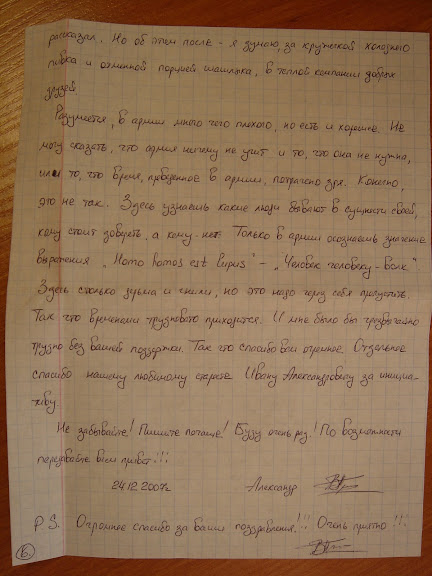 рассказал. Но об этом после - я думаю, за кружечкой холодного
пивка и отменной порцией шашлыка, в тёплой компании добрых
друзей
Разумеется, в армии много чего плохого, но есть и хорошее. Не
могу сказать, что армия ничему не учит и то, что она не нужна,
или то, что время, проведённое в армии, потрачено зря. Конечно,
это не так. Здесь узнаешь какие люди бывают в сущности своей,
кому стоит доверять, а кому нет. Только в армии осознаёшь значение
выражения "Homo homos est lupus" - "Человек человеку - волк".
Здесь столько дерьма и гнили, но это надо через себя пропустить.
Так что временами трудновато приходится. И мне было бы чрезвычайно
трудно без вашей поддержки. Так что спасибо вам огромное. Отдельное
спасибо нашему любимому старосте Ивану Александровичу за инициа-
тиву.
Не забывайте! Пишите почаще! Буду очень рад! По возможности
передавайте всем привет!!!
24.12.2007г. Александр
P.S. Огромное спасибо за ваши поздравления!!! Очень приятно!!!
6.